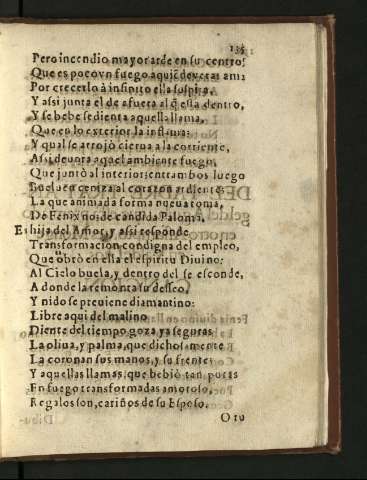 135
Pero incendio mayor arde en su centro:
Que es poco vn fuego a quiẽ de veras ama
Por crecerlo à infinito ella suspira,
Y assi junta el de afuera al q̃ està dentro,
Y se bebe sedienta aquella llama,
Que en lo exterior la inflama:
Y qual se arrojò cierua a la corriente,
Assi deuora aquel ambiente fuego,
Que juntò al interior: entrambos luego
Bueluen ceniza al coraçon ardiente:
La que animada forma nueua toma,
De Fenix no; de candida Paloma.
Es hija del Amor, y assi responde
Transformacion condigna del empleo,
Que obrò en ella el espiritu Diuino:
Al Cielo buela, y dentro del se esconde,
A donde la remonta su desseo,
Y nido se preuiene diamantino:
Libre aqui del malino
Diente del tiempo goza ya seguras
La oliua, y palma, que dichosamente
La coronan sus manos, y su frente:
Y aquellas llamas, que bebiò tan puras
En fuego transformadas amoroso,
Regalos son, cariños de su Esposo.
O tu